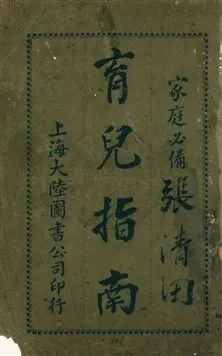 家庭必備
張清田
育兒指南
上海大陸圖書公司印行